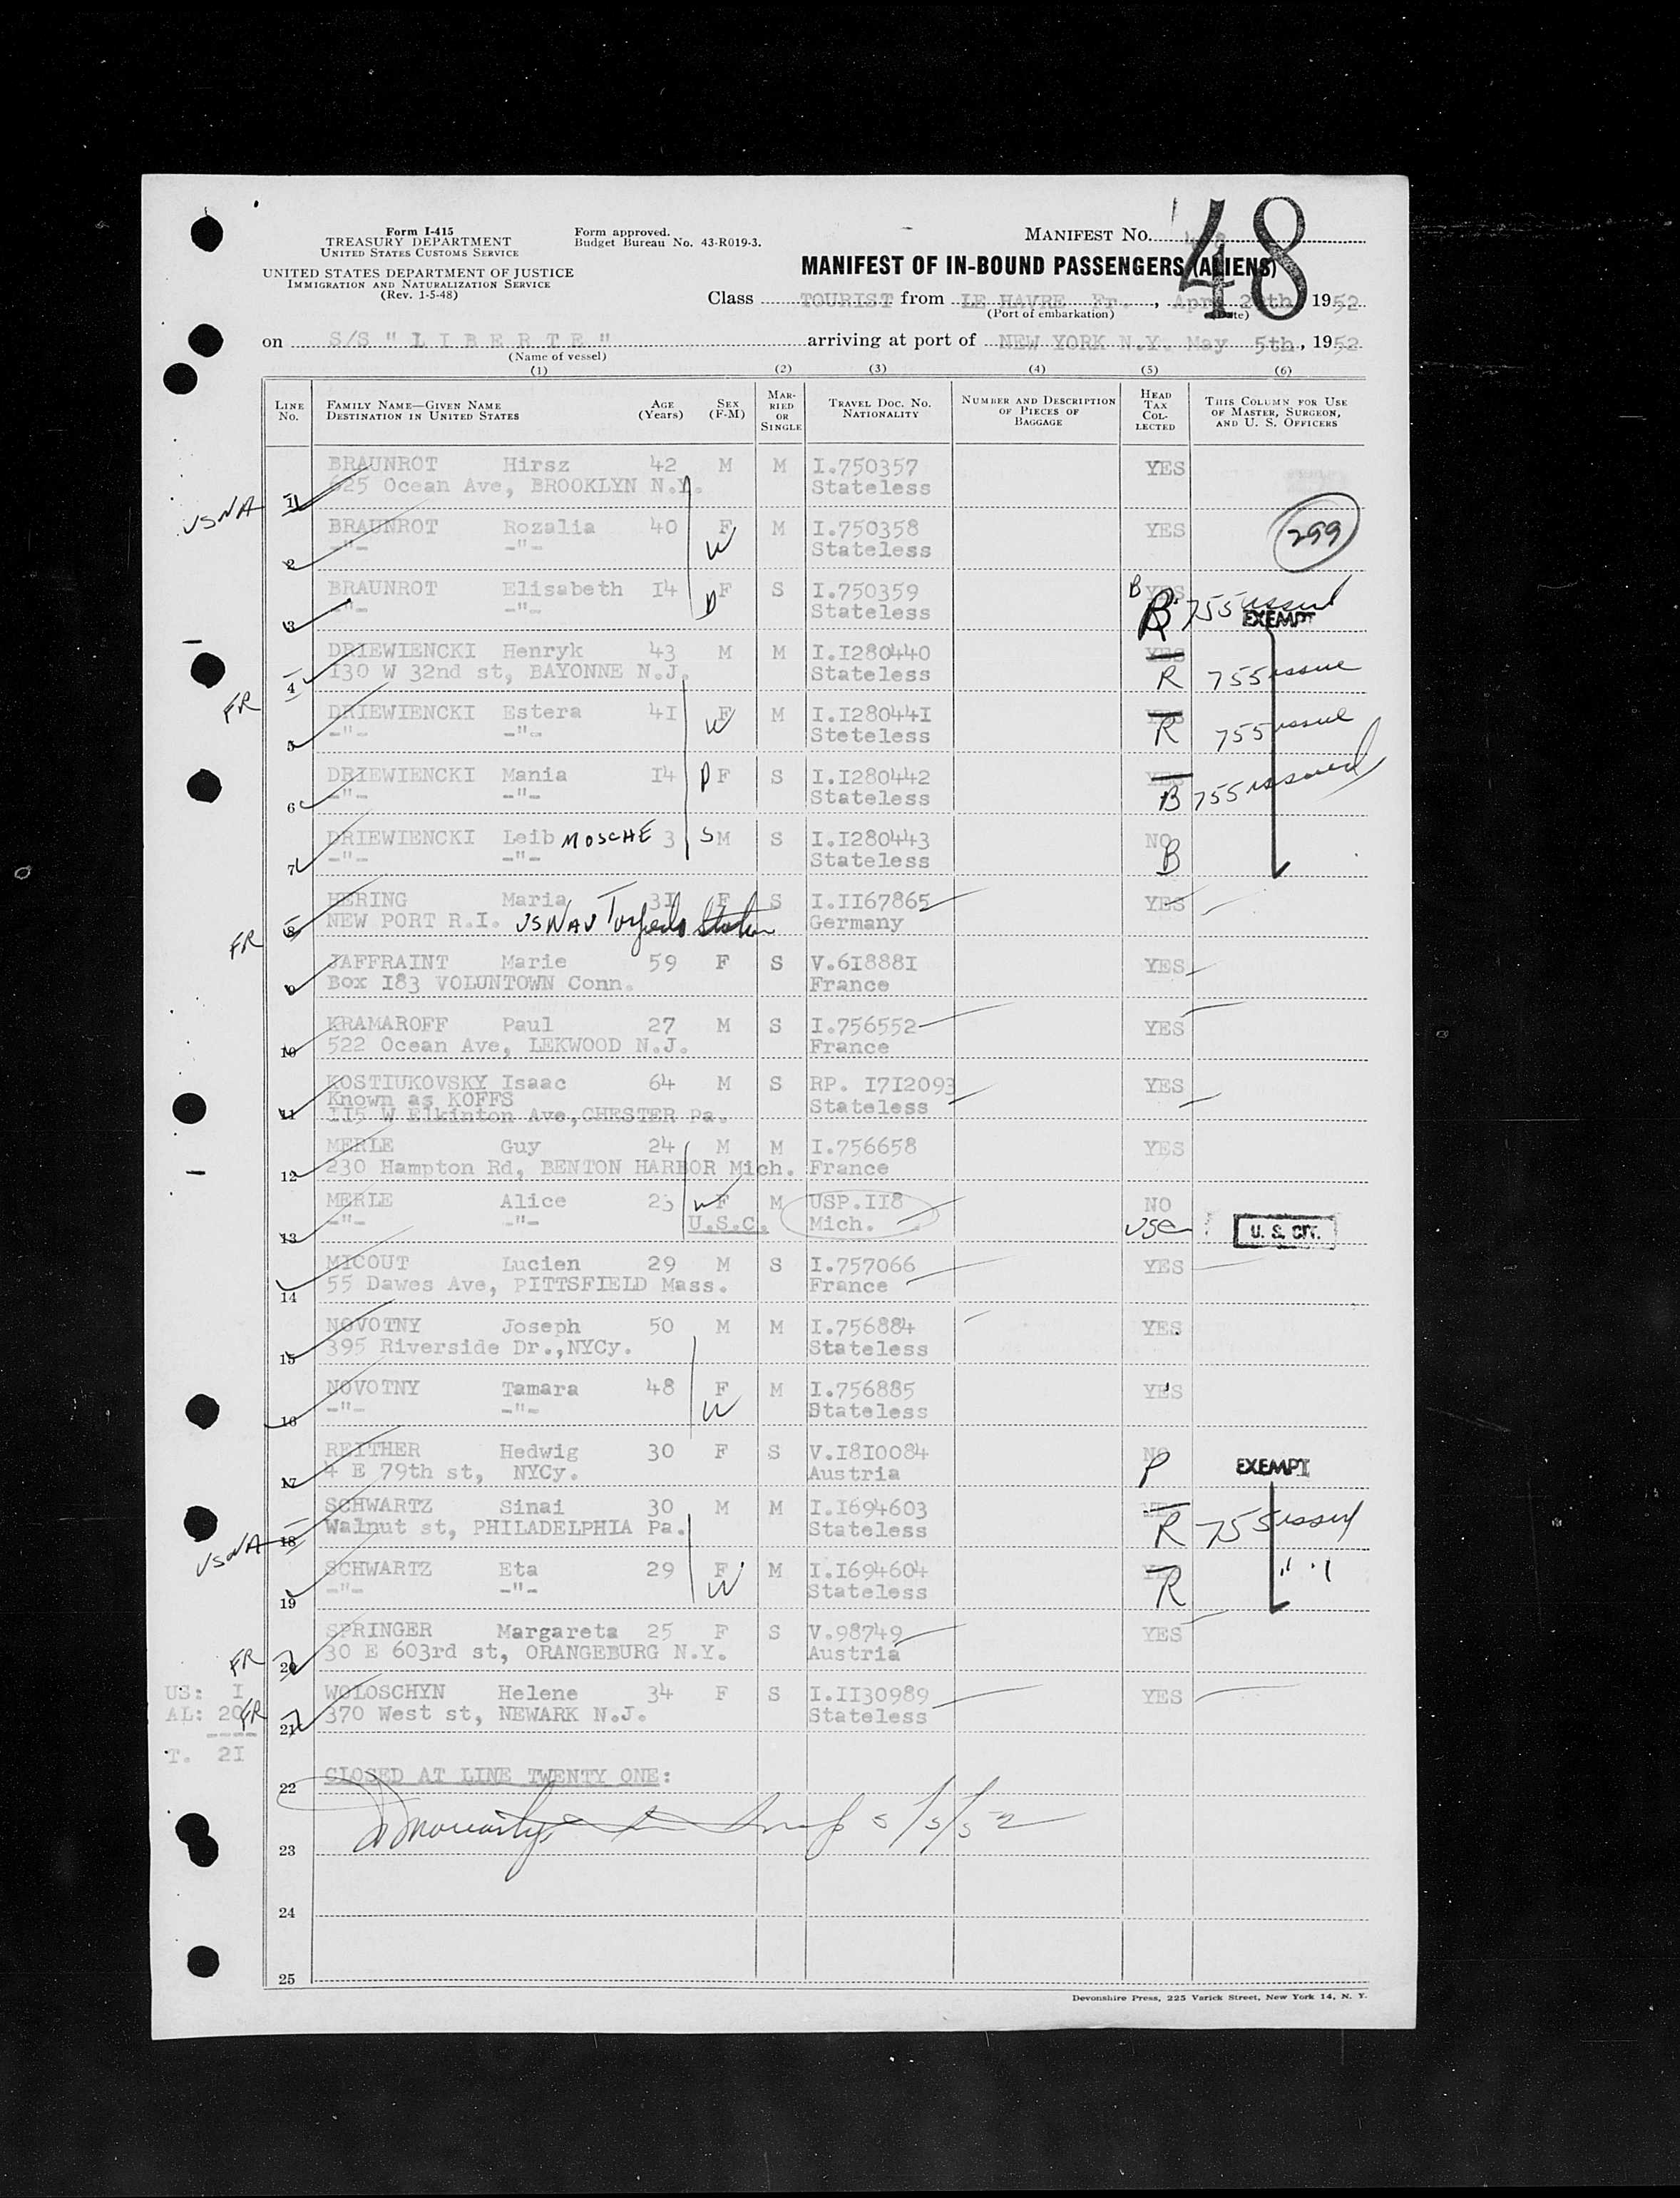 48
Form I-415
TREASURY DEPARTMENT
UNITED STATES CUSTOMS SERVICE
UNITED STATES DEPARTMENT OF JUSTICE
IMMIGRATION AND NATURALIZATION SERVICE
(Rev. 1-5-48)
Form approved.
Budget Bureau No. 43-R019-3.
MANIFEST No.
MANIFEST OF IN-BOUND PASSENGERS (ALIENS)
Class TOURIST from LE HAVRE Fr., Apr. th 1952
(Port of embarkation) (Date)
on S/S " L I B E R T E " arriving at port of NEW YORK N.Y. May 5th, 1952
(Name of vessel)
(1) (2) (3) (4) (5) (6)
LINE No. FAMILY NAME—GIVEN NAME DESTINATION IN UNITED STATES AGE (Years) SEX (F-M) MARRIED OR SINGLE TRAVEL DOC. NO. NATIONALITY NUMBER AND DESCRIPTION OF PIECES OF BAGGAGE HEAD TAX COLLECTED THIS COLUMN FOR USE OF MASTER, SURGEON, AND U. S. OFFICERS
BRAUNROT Hirsz 42 M M I.750357 YES
USNA 1 625 Ocean Ave, BROOKLYN N.Y. Stateless
BRAUNROT Rozalia 40 F M I.750358 YES 299
2 -"- -"- W Stateless
BRAUNROT Elisabeth I4 F S I.750359 YES B
3 -"- -"- D Stateless R 755 issued EXEMPT
DRIEWIENCKI Henryk 43 M M I.I280440 YES
4 130 W 32nd st, BAYONNE N.J. Stateless R 755 issue
FR DRIEWIENCKI Estera 4I F M I.I28044I YES
5 -"- -"- W Steteless R 755 issue
DRIEWIENCKI Mania I4 D F S I.I280442 YES
6 -"- -"- Stateless B 755 issued
DRIEWIENCKI Leib MOSCHE 3 S M S I.I280443 NO
7 -"- -"- Stateless B
HERING Maria 3I F S I.II67865 YES
8 NEW PORT R.I. US NAV Torpedo Station Germany
FR JAFFRAINT Marie 59 F S V.6I888I YES
9 Box I83 VOLUNTOWN Conn. France
KRAMAROFF Paul 27 M S I.756552 YES
10 522 Ocean Ave, LEKWOOD N.J. France
KOSTIUKOVSKY Isaac 64 M S RP. I7I2093 YES
Known as KOFFS Stateless
11 II5 W Elkinton Ave,CHESTER Pa.
MERLE Guy 24 M M I.756658 YES
12 230 Hampton Rd, BENTON HARBOR Mich. France
MERLE Alice 23 W F M USP.II8 NO
13 -"- -"- U.S.C. Mich. USC U. S. CIT.
MICOUT Lucien 29 M S I.757066 YES
14 55 Dawes Ave, PITTSFIELD Mass. France
NOVOTNY Joseph 50 M M I.756884 YES
15 395 Riverside Dr.,NYCy. Stateless
NOVOTNY Tamara 48 F M I.756885 YES
16 -"- -"- W Stateless
REITHER Hedwig 30 F S V.I8I0084 NO
17 4 E 79th st, NYCy. Austria P EXEMPT
SCHWARTZ Sinai 30 M M I.I694603
USNA 18 Walnut st, PHILADELPHIA Pa. Stateless R 755 issued
SCHWARTZ Eta 29 F M I.I694604 YES
19 -"- -"- W Stateless R " "
SPRINGER Margareta 25 F S V.98749 YES
FR 20 30 E 603rd st, ORANGEBURG N.Y. Austria
US: I WOLOSCHYN Helene 34 F S I.II30989 YES
AL: 20 FR 21 370 West st, NEWARK N.J. Stateless
T. 2I
22 CLOSED AT LINE TWENTY ONE:
5/5/52
23
24
25
Devonshire Press, 225 Varick Street, New York 14, N. Y.